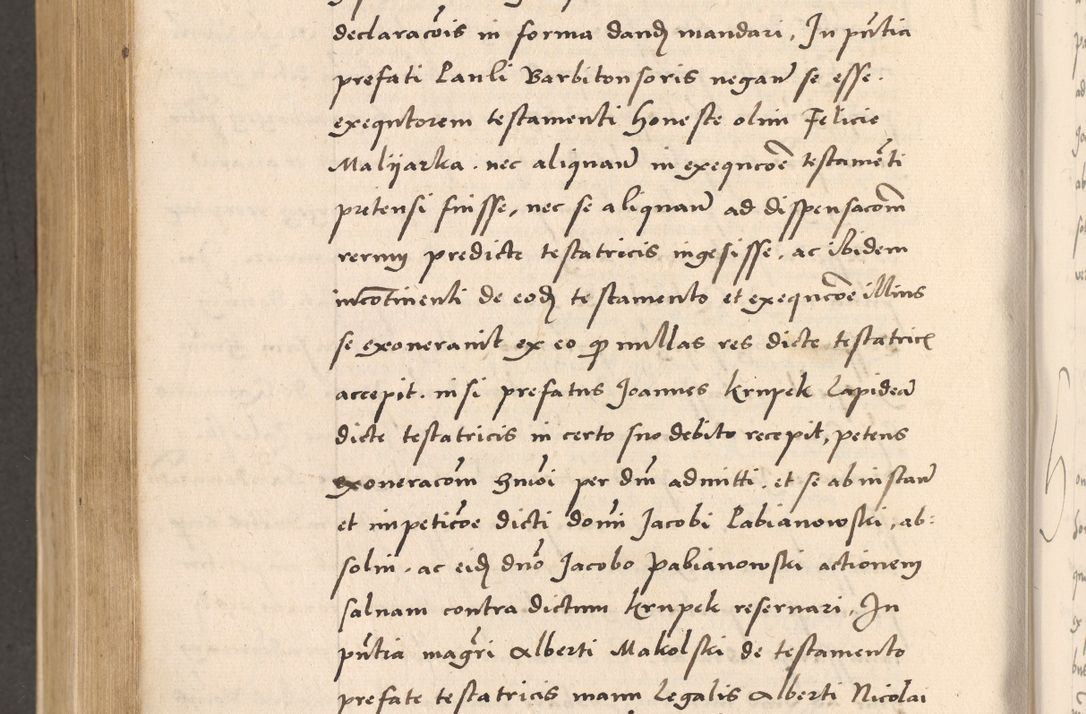 declaracōis in forma dandȷ mandari, In pn̄tia
prefati Pauli Barbitonsoris negavit se esse
exequtorem testamenti honeste olim Felicie
Malyjarka. nec aliquam̄ in exequcōe testamēti
pretensi fuisse, nec se aliquam̄ ad dispensacōm
rerum predicte testatricis ingesisse, ac ibidem
incōtinenti de eodȷ testamento et exequcōe illius
se exoneravit ex eo qp nullas res dicte testatricȷ
accepit. nisi prefatus Joannes Krupek Lapidea
dicte testatricis in certo suo debito recepit, petens
exoneracōm hmōi per dnm̄ admitti. et se ab instan̄
et inpeticōe dicti domī Jacobi Pabianowski, ab:
solui. ac eidȷ dnō Jacobo Pabianowski actionem
saluam contra dictum Krupek reservari, In
pn̄tia magrī Alberti Makolski de testamento
prefate testatricis manu legalis Alberti Nicolai